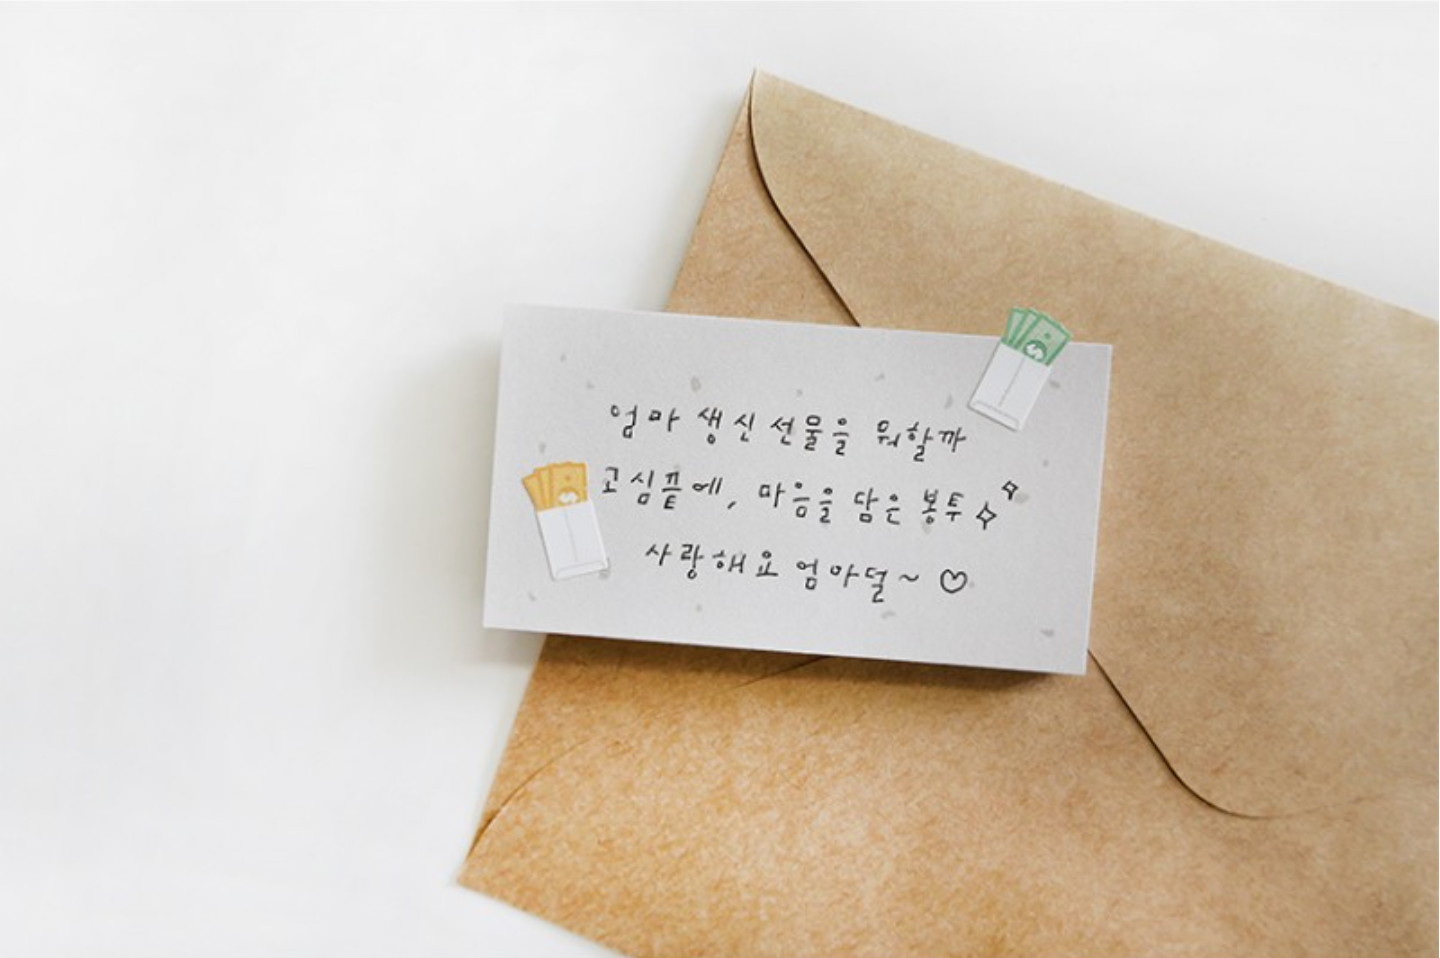 엄마 생신 선물을 뭐할까
고심끝에, 마음을 담은 봉투
사랑해요 엄마덜~ ♡